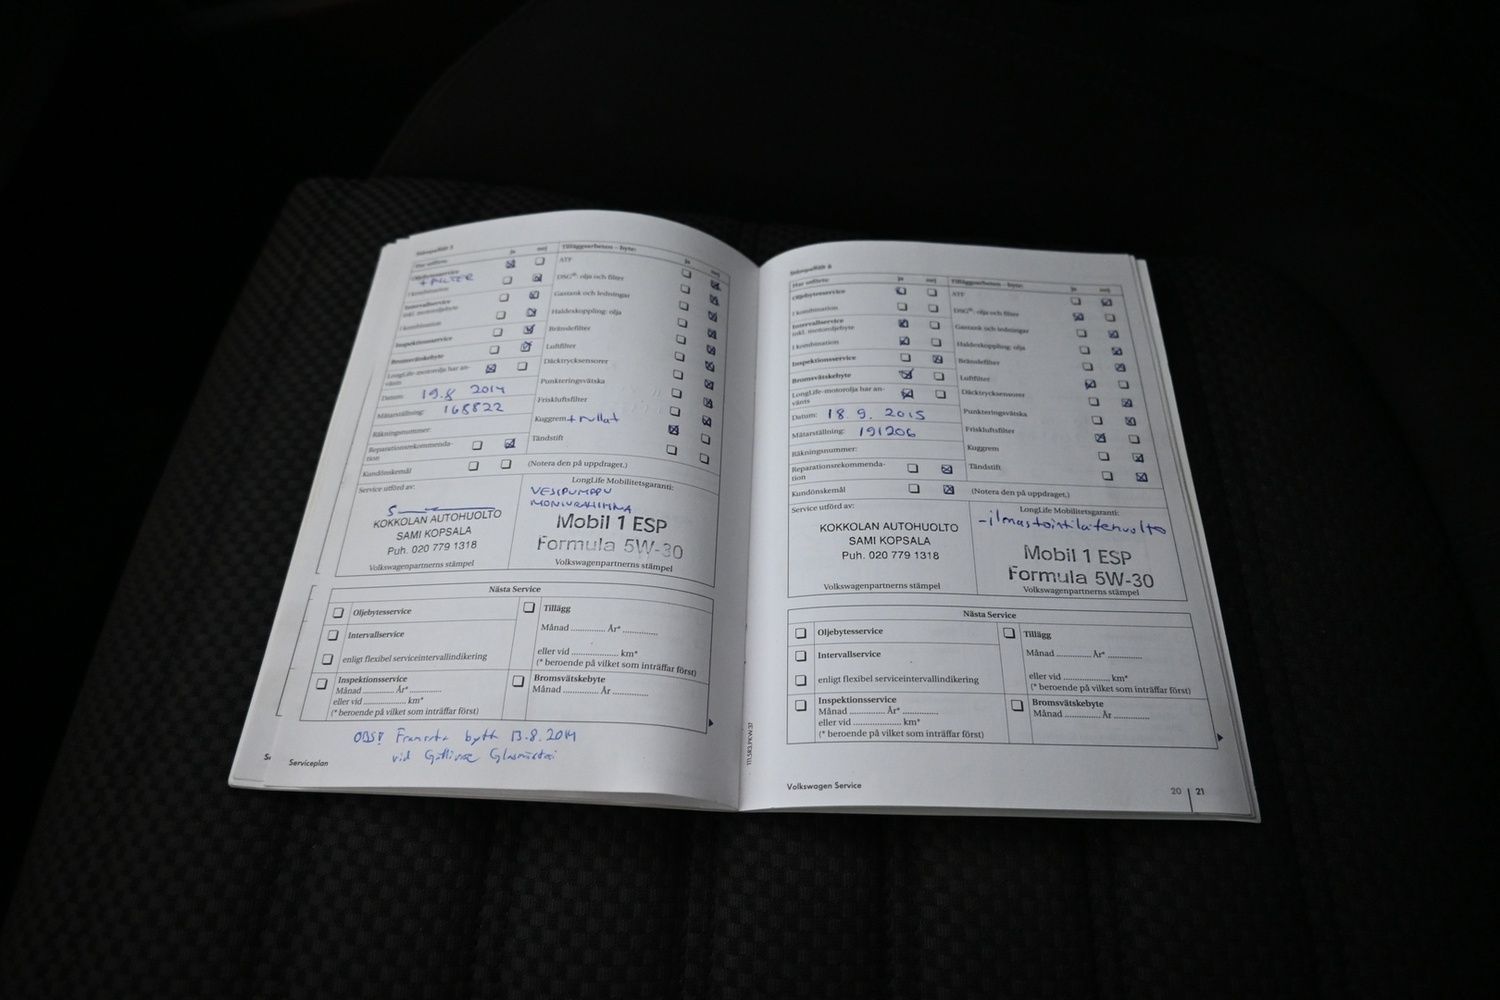 Stämpelfält 5
Har utförts:
ja
nej
Oljebytesservice
+ FILTER
i kombination
Intervallservice
inkl. motoroljebyte
i kombination
Inspektionsservice
Bromsvätskebyte
LongLife-motorolja har an-
vänts
Datum: 19.8 2014
Mätarställning: 168822
Räkningsnummer:
Reparationsrekommenda-
tion
Kundönskemål
Tilläggsarbeten – byte:
ja
nej
ATF
DSG®: olja och filter
Gastank och ledningar
Haldexkoppling: olja
Bränslefilter
Luftfilter
Däcktrycksensorer
Punkteringsvätska
Friskluftsfilter
Kuggrem + rullat
Tändstift
(Notera den på uppdraget.)
Service utförd av:
KOKKOLAN AUTOHUOLTO
SAMI KOPSALA
Puh. 020 779 1318
Volkswagenpartnerns stämpel
LongLife Mobilitetsgaranti:
VESIPUMPPU
MONIURAHIHNA
Mobil 1 ESP
Formula 5W-30
Volkswagenpartnerns stämpel
Nästa Service
Oljebytesservice
Intervallservice
enligt flexibel serviceintervallindikering
Inspektionsservice
Månad ............ År* ............
eller vid ................ km*
(* beroende på vilket som inträffar först)
Tillägg
Månad ............ År* ............
eller vid ................ km*
(* beroende på vilket som inträffar först)
Bromsvätskebyte
Månad ............ År ............
OBS! Framruta bytt 13.8.2014
vid
Serviceplan
Stämpelfält 6
Har utförts:
ja
nej
Oljebytesservice
i kombination
Intervallservice
inkl. motoroljebyte
i kombination
Inspektionsservice
Bromsvätskebyte
LongLife-motorolja har an-
vänts
Datum: 18 9. 2015
Mätarställning: 191206
Räkningsnummer:
Reparationsrekommenda-
tion
Kundönskemål
Tilläggsarbeten – byte:
ja
nej
ATF
DSG®: olja och filter
Gastank och ledningar
Haldexkoppling: olja
Bränslefilter
Luftfilter
Däcktrycksensorer
Punkteringsvätska
Friskluftsfilter
Kuggrem
Tändstift
(Notera den på uppdraget.)
Service utförd av:
KOKKOLAN AUTOHUOLTO
SAMI KOPSALA
Puh. 020 779 1318
Volkswagenpartnerns stämpel
LongLife Mobilitetsgaranti:
- ilmastointilaitehuolto
Mobil 1 ESP
Formula 5W-30
Volkswagenpartnerns stämpel
Nästa Service
Oljebytesservice
Intervallservice
enligt flexibel serviceintervallindikering
Inspektionsservice
Månad ............ År* ............
eller vid ................ km*
(* beroende på vilket som inträffar först)
Tillägg
Månad ............ År* ............
eller vid ................ km*
(* beroende på vilket som inträffar först)
Bromsvätskebyte
Månad ............ År ............
Volkswagen Service
20 | 21